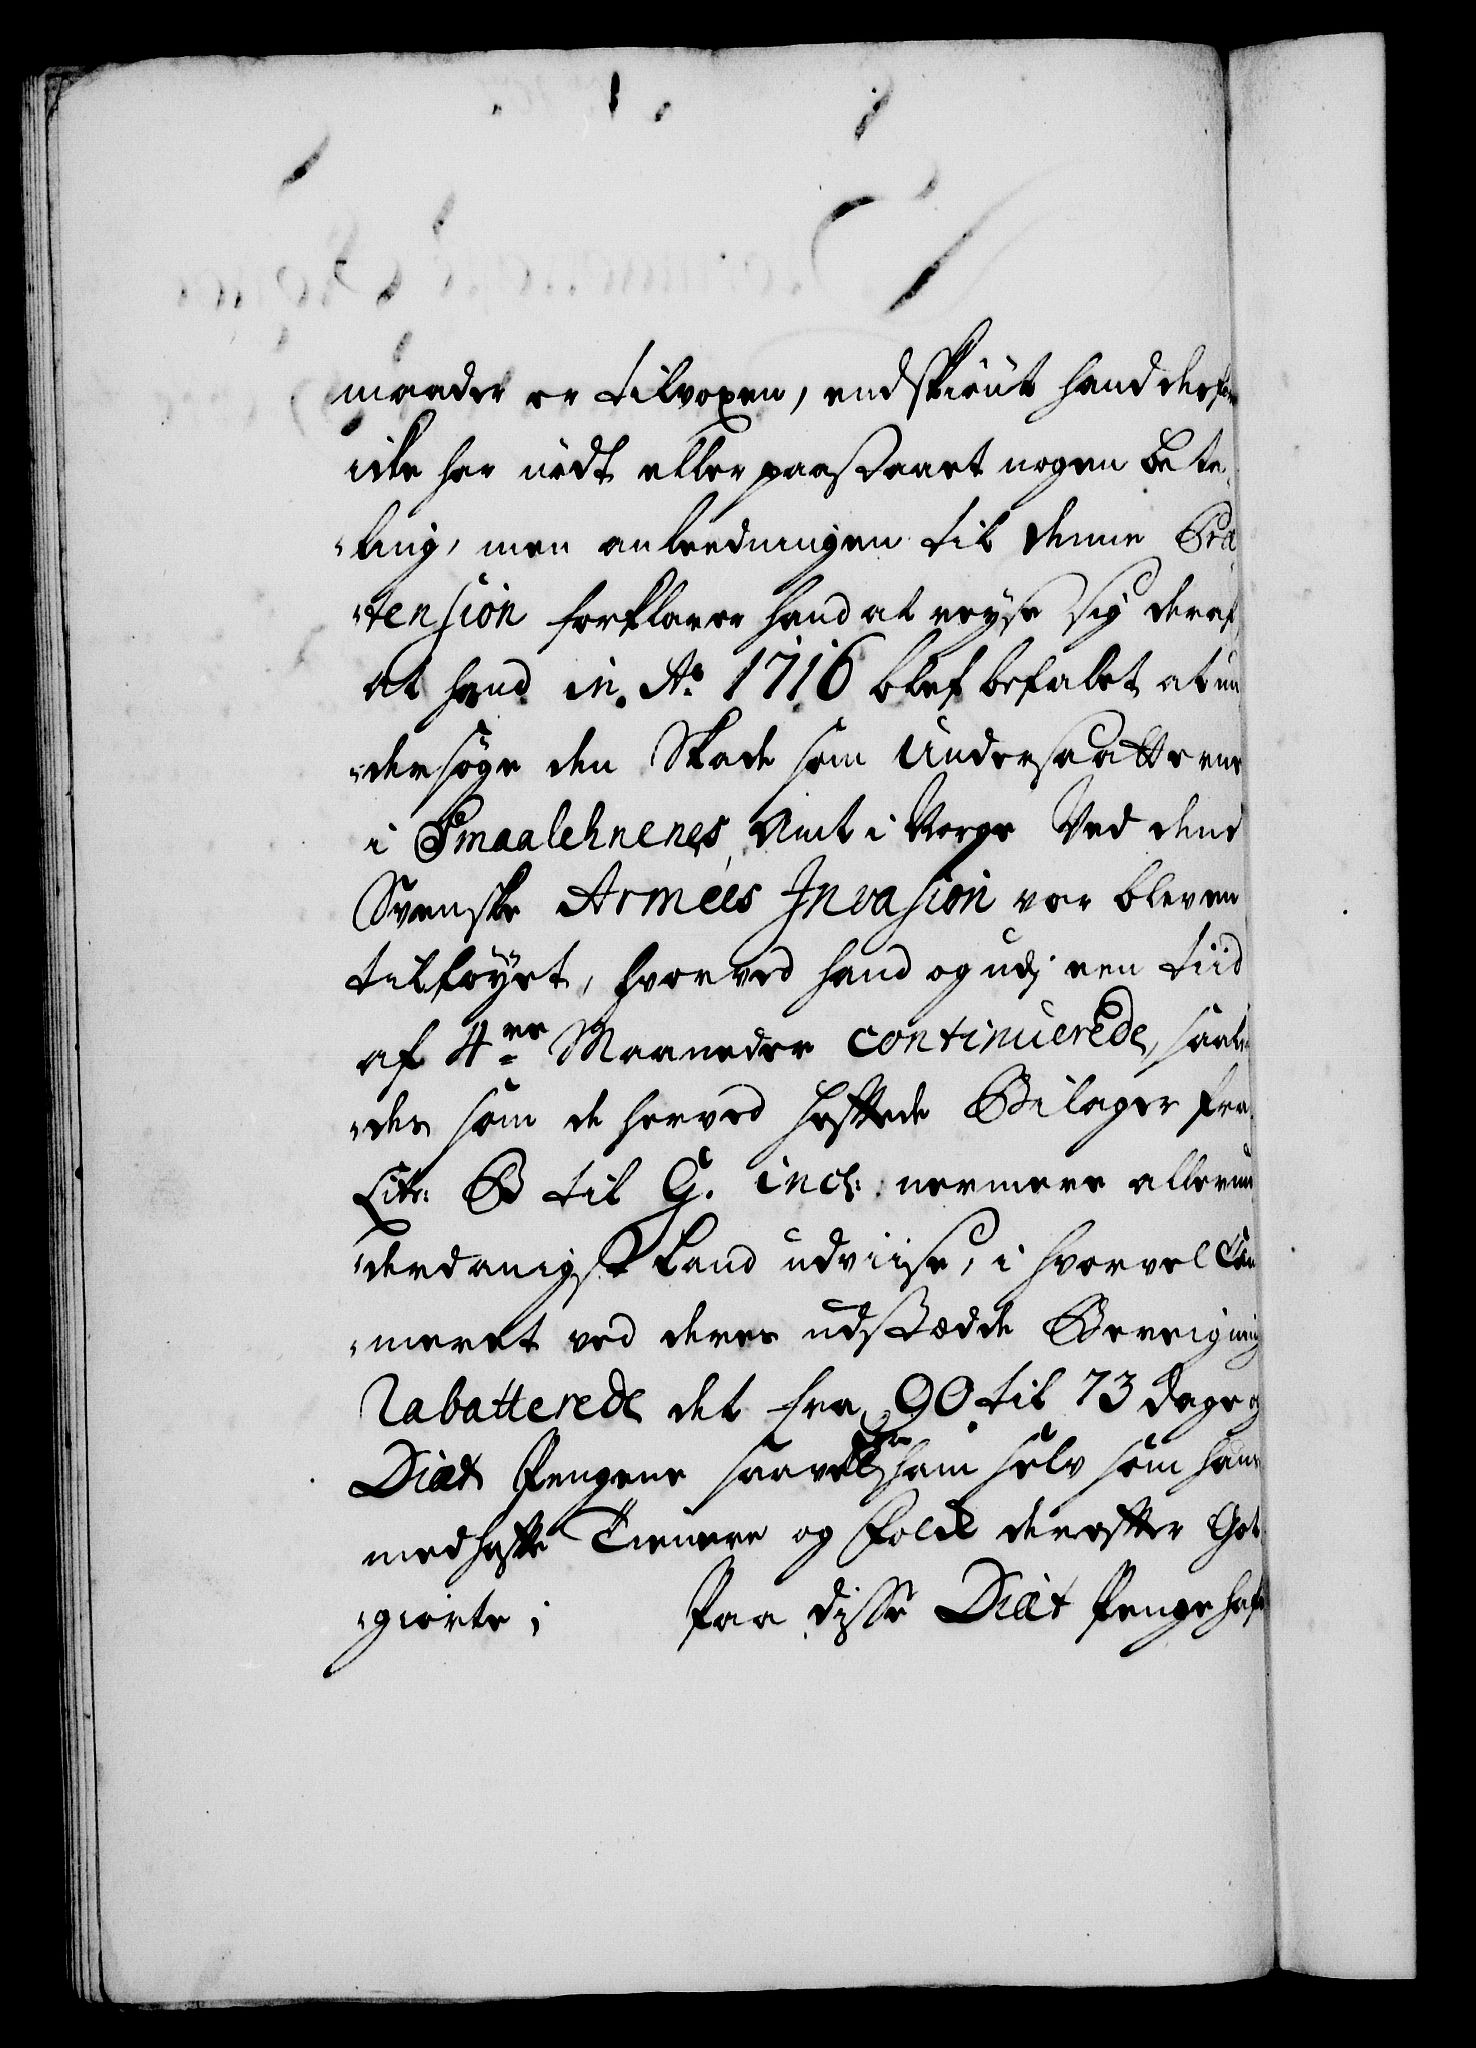 maader er tilvoxen, endskiönt hand derfor
icke har nödt eller paastaaet nogen beta¬
ling, men anleedningen til denne Præ¬
tension forklarer hand at reyse sig deraf,
at hand in Ao 1716 blef befalet at un
dersøge den Skade som Undersaatterne
i Smaalehnenes Amt i Norge Ved den
Svenske Armees Invasion var bleven
tilföyet, hvorved hand og udj een tiid
af 4re Maaneder continuerede, saale
des som de herved heftede Bilager fra
Litr: B til G. incl: nermere allerun
derdanigst kand udviise, i hvorvel Cam
meret ved deres udstædde Bereigning
rabatterede det fra 90 til 73 dage og
Diæt Pengene saavel for ham selv som hans
medhafte Tienere og Folck derefter Got
giorte; Paa disse Diæt Penge hafr